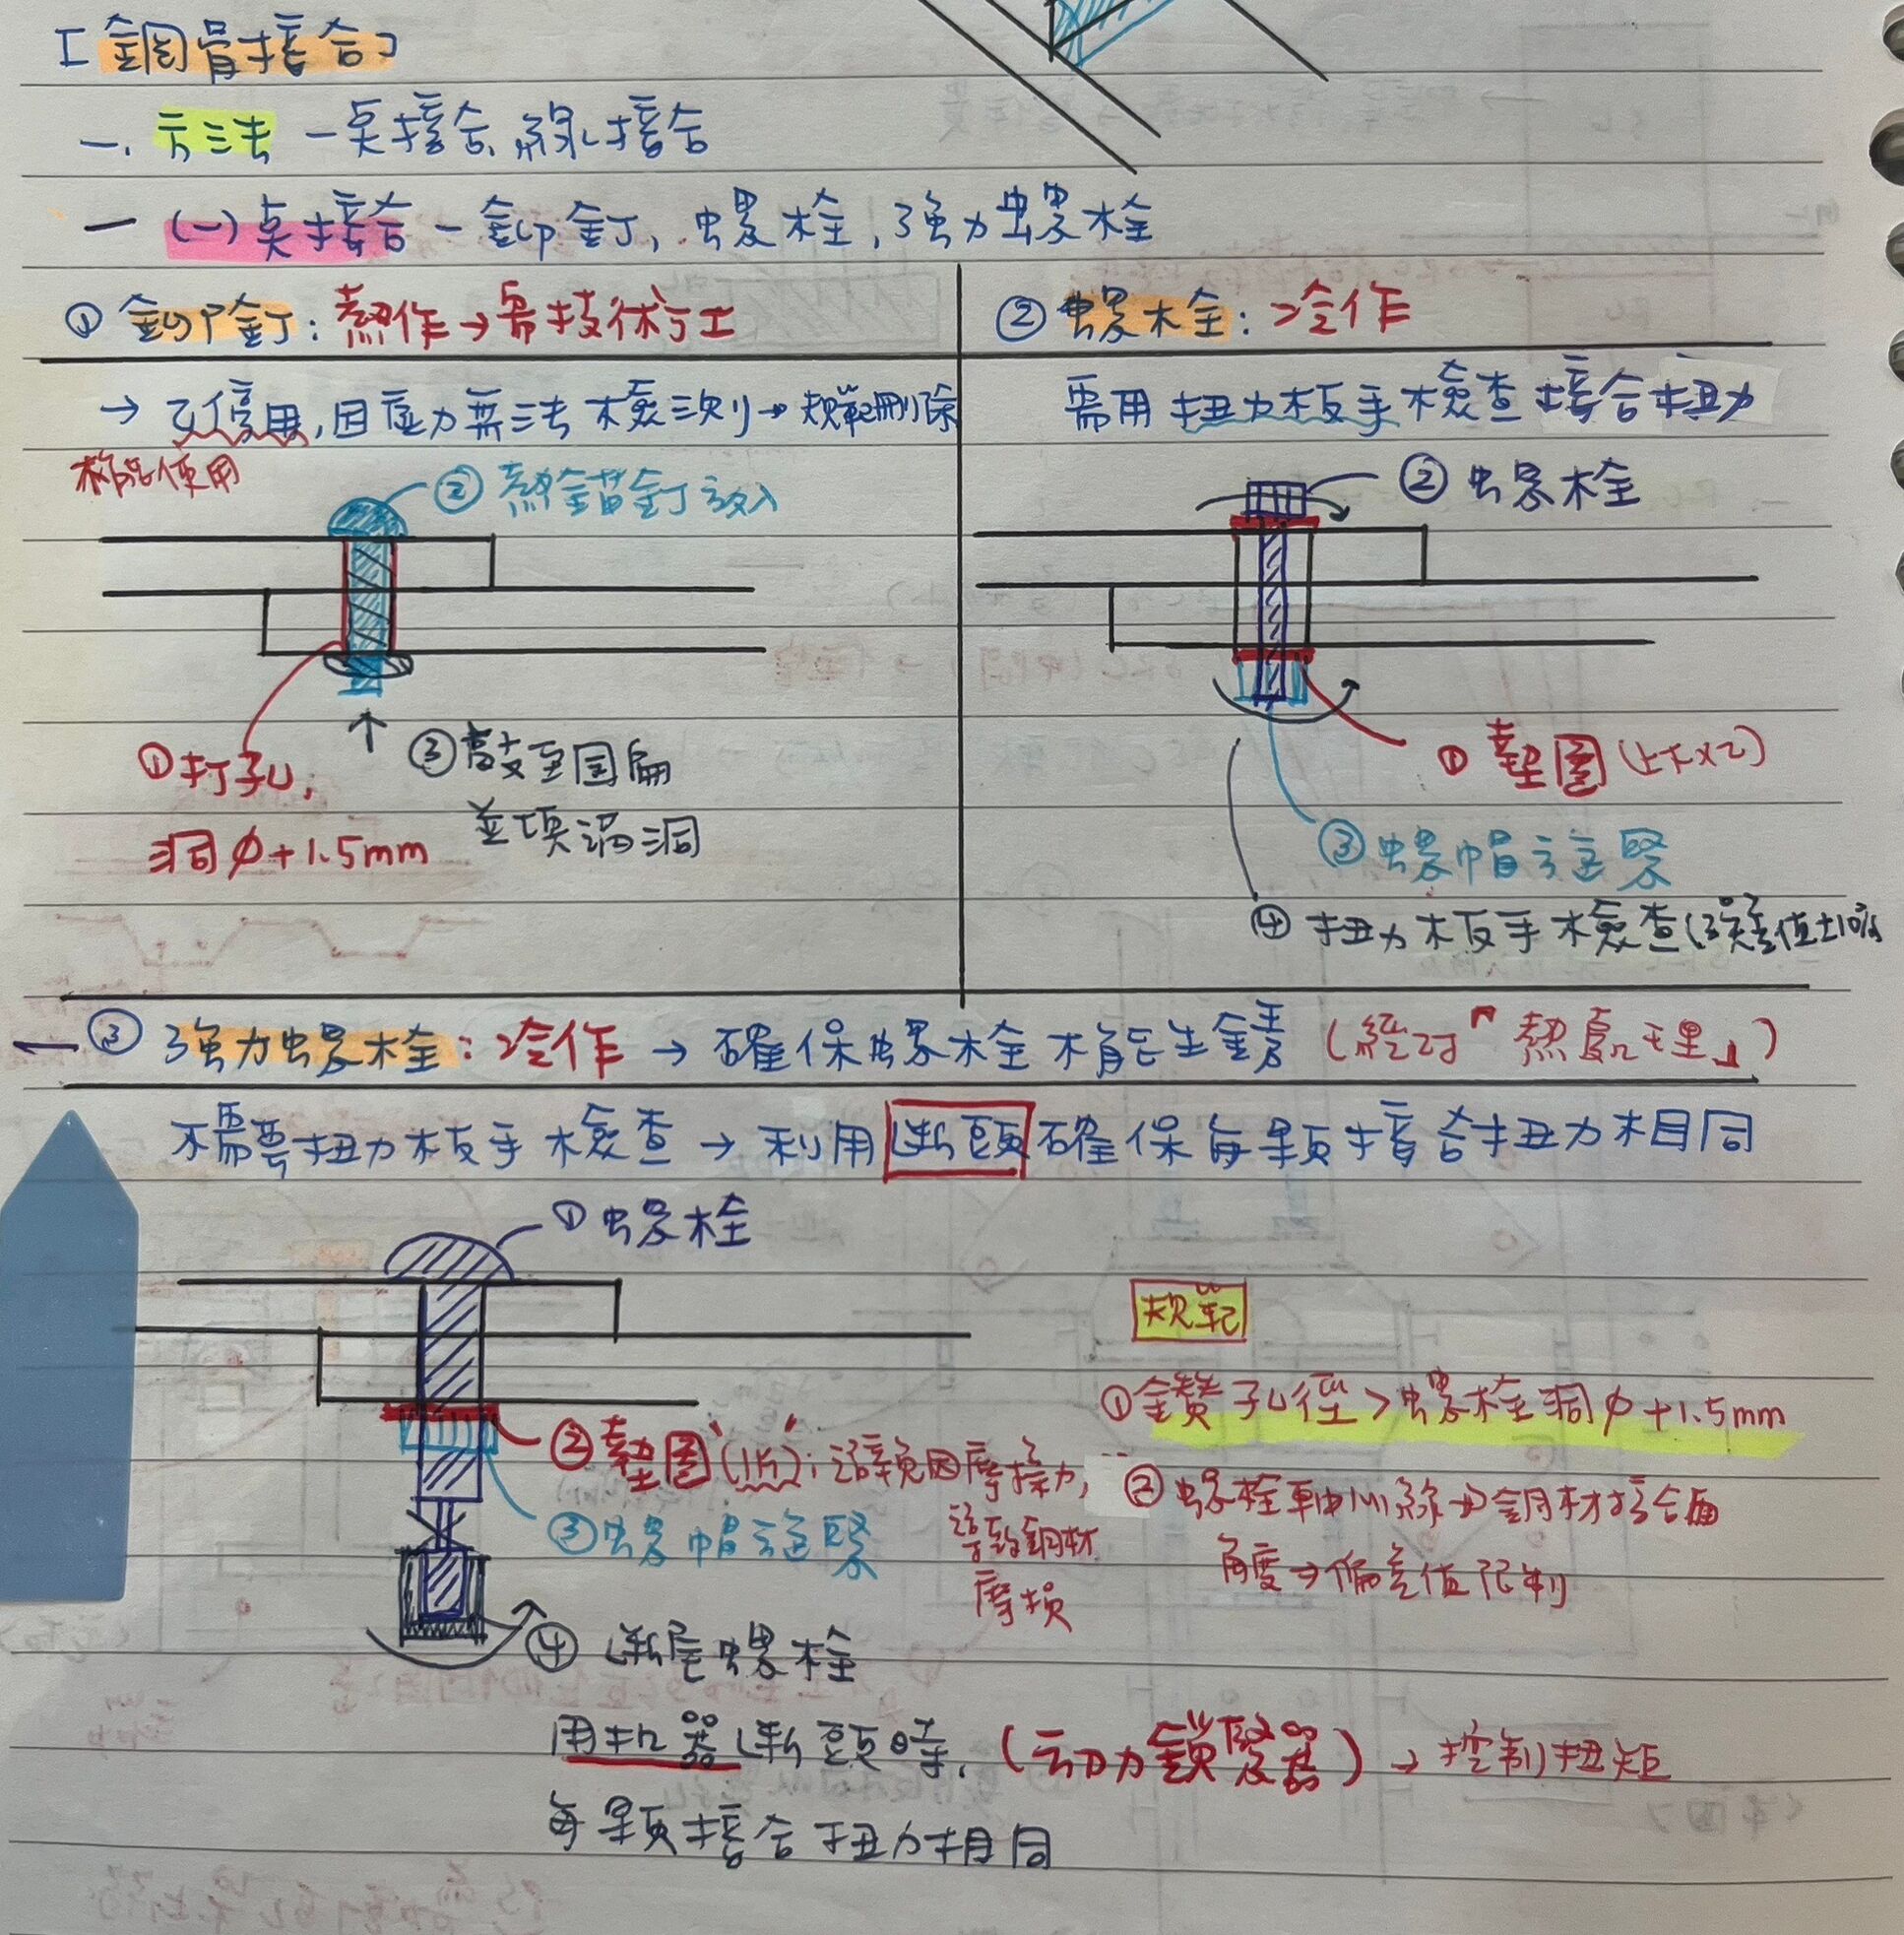 [鋼骨接合]
一. 方法 — 点接合, 線接合
— (一) 点接合 — 鉚釘, 螺栓, 強力螺栓
① 鉚釘: 熱作 → 需技術工
→ 已停用, 因應力無法檢測 → 規範刪除
橋梁使用
② 熱錨釘放入
① 打孔,
洞 ϕ+1.5mm
↑ ③ 敲至固扁
並填滿洞
② 螺栓: 冷作
需用 扭力板手 檢查 接合扭力
② 螺栓
① 墊圈 (上下x2)
③ 螺帽旋緊
④ 扭力板手 檢查 (誤差值±10%
③ 強力螺栓: 冷作 → 確保螺栓不能生鏽 (經过「熱處理」)
不需要扭力板手 檢查 → 利用 斷頭 確保每顆接合扭力相同
① 螺栓
② 墊圈 "(1片)"; 避免因摩擦力,
導致鋼材
磨損
③ 螺帽旋緊
④ 斷尾螺栓
用机器斷頭時, (动力鎖緊器) → 控制扭矩
每顆接合扭力相同
規範
① 鑽孔徑 > 螺栓洞 ϕ+1.5mm
② 螺栓軸心線 → 鋼材接合面
角度 → 偏差值限制